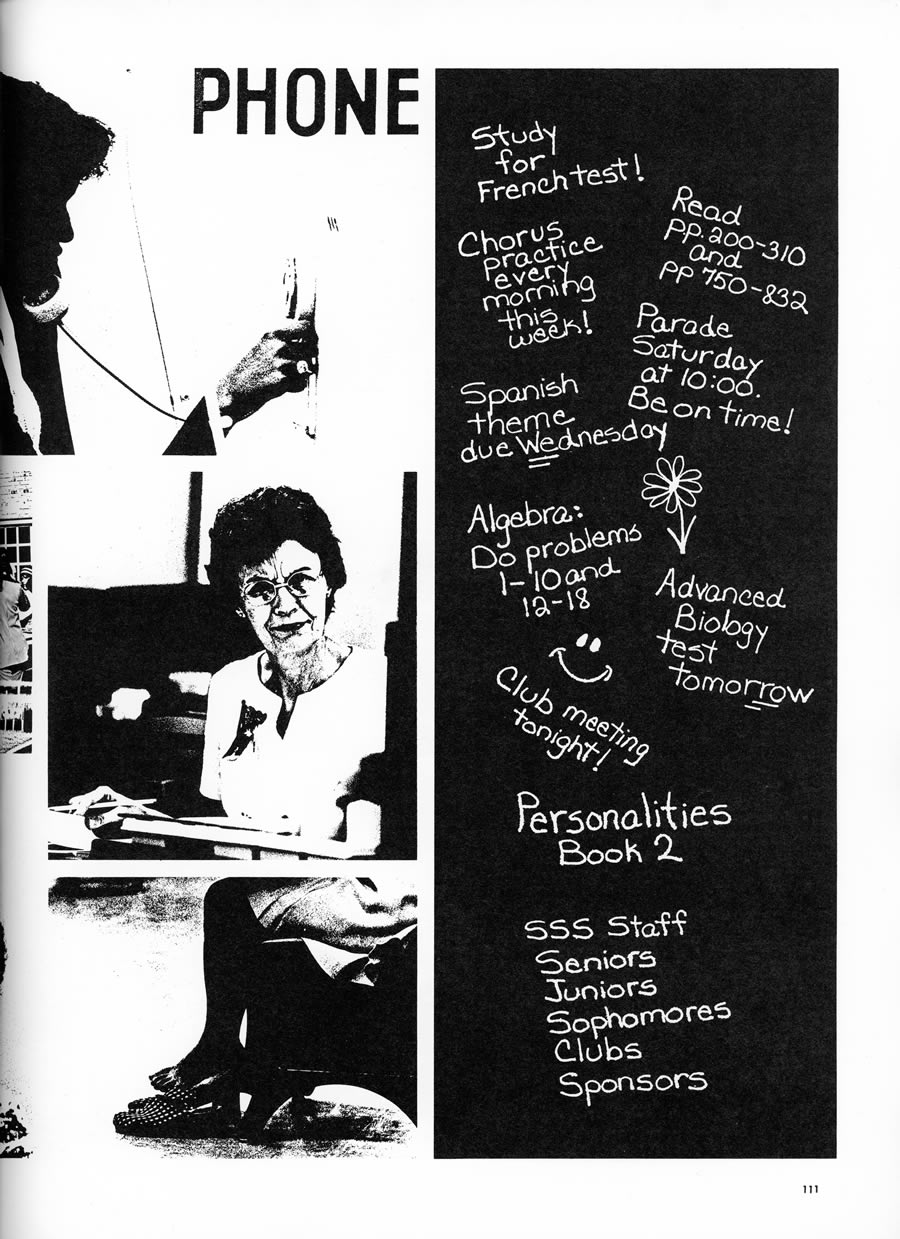 PHONE
Study
for
French test!
Chorus
practice
every
morning
this
week!
Read
pp. 200-310
and
pp 750-832
Parade
Saturday
at 10:00.
Be on time!
Spanish
theme
due Wednesday
Algebra:
Do problems
1-10 and
12-18
Advanced
Biology
test
tomorrow
Club meeting
tonight!
Personalities
Book 2
SSS Staff
Seniors
Juniors
Sophomores
Clubs
Sponsors
111